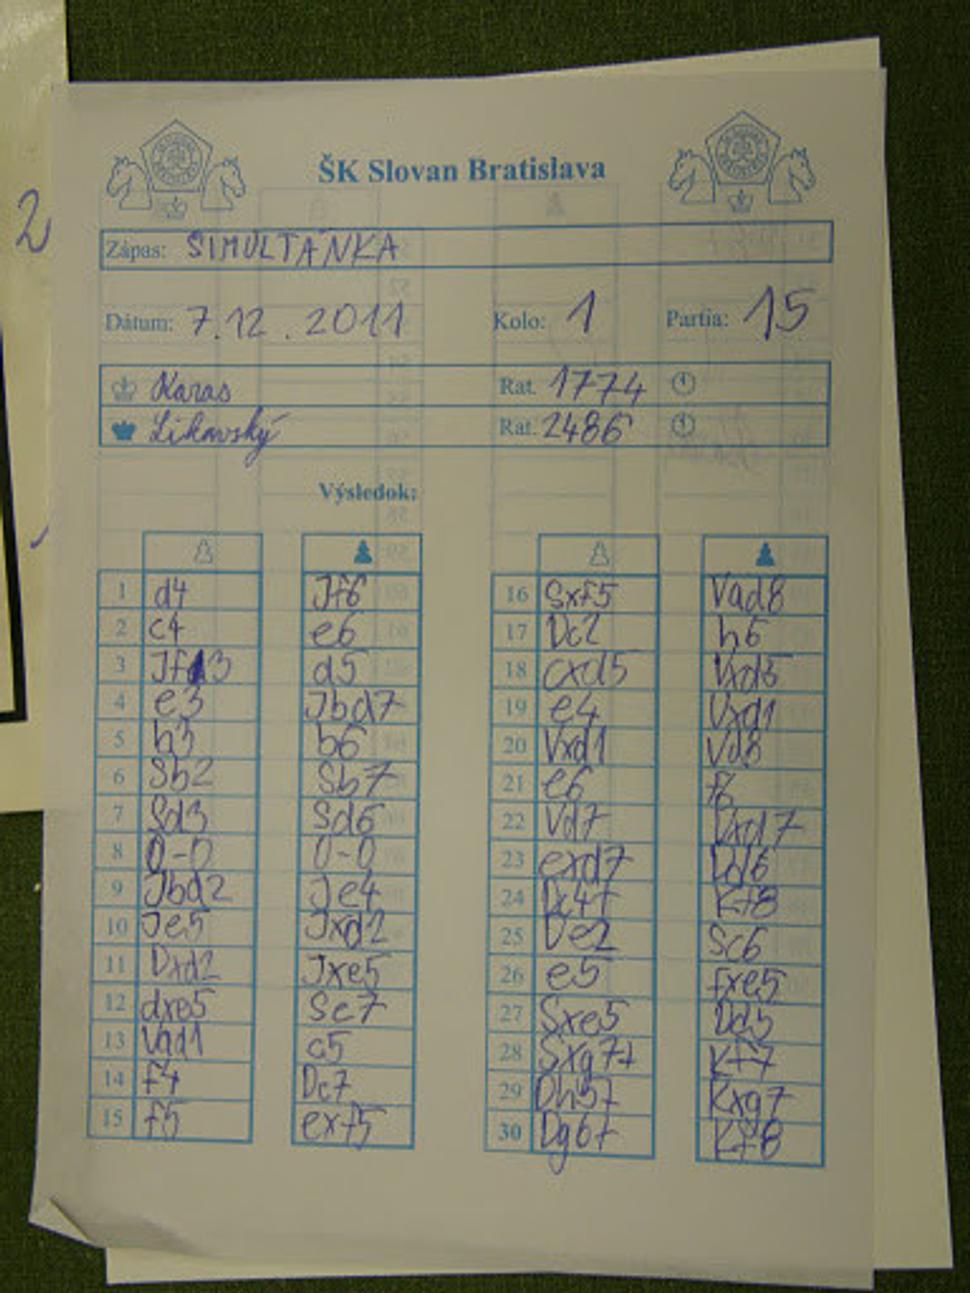 2
ŠK Slovan Bratislava
Zápas: SIMULTÁNKA
Dátum: 7.12.2011 Kolo: 1 Partia: 15
Karas Rat. 1774
Likavský Rat. 2486
Výsledok:
1 d4 Jf6
2 c4 e6
3 Jf3 d5
4 e3 Jbd7
5 b3 b6
6 Sb2 Sb7
7 Sd3 Sd6
8 0-0 0-0
9 Jbd2 Je4
10 Je5 Jxd2
11 Dxd2 Jxe5
12 dxe5 Se7
13 Vad1 c5
14 f4 Dc7
15 f5 exf5
16 Sxf5 Vad8
17 Dc2 h6
18 cxd5 Vxd5
19 e4 Vxd1
20 Vxd1 Vd8
21 e6 f6
22 Vd7 Vxd7
23 exd7 Dd6
24 Dc4+ Kf8
25 De2 Sc6
26 e5 fxe5
27 Sxe5 Dd5
28 Sxg7+ Kf7
29 Dh5+ Kxg7
30 Dg6+ Kf8